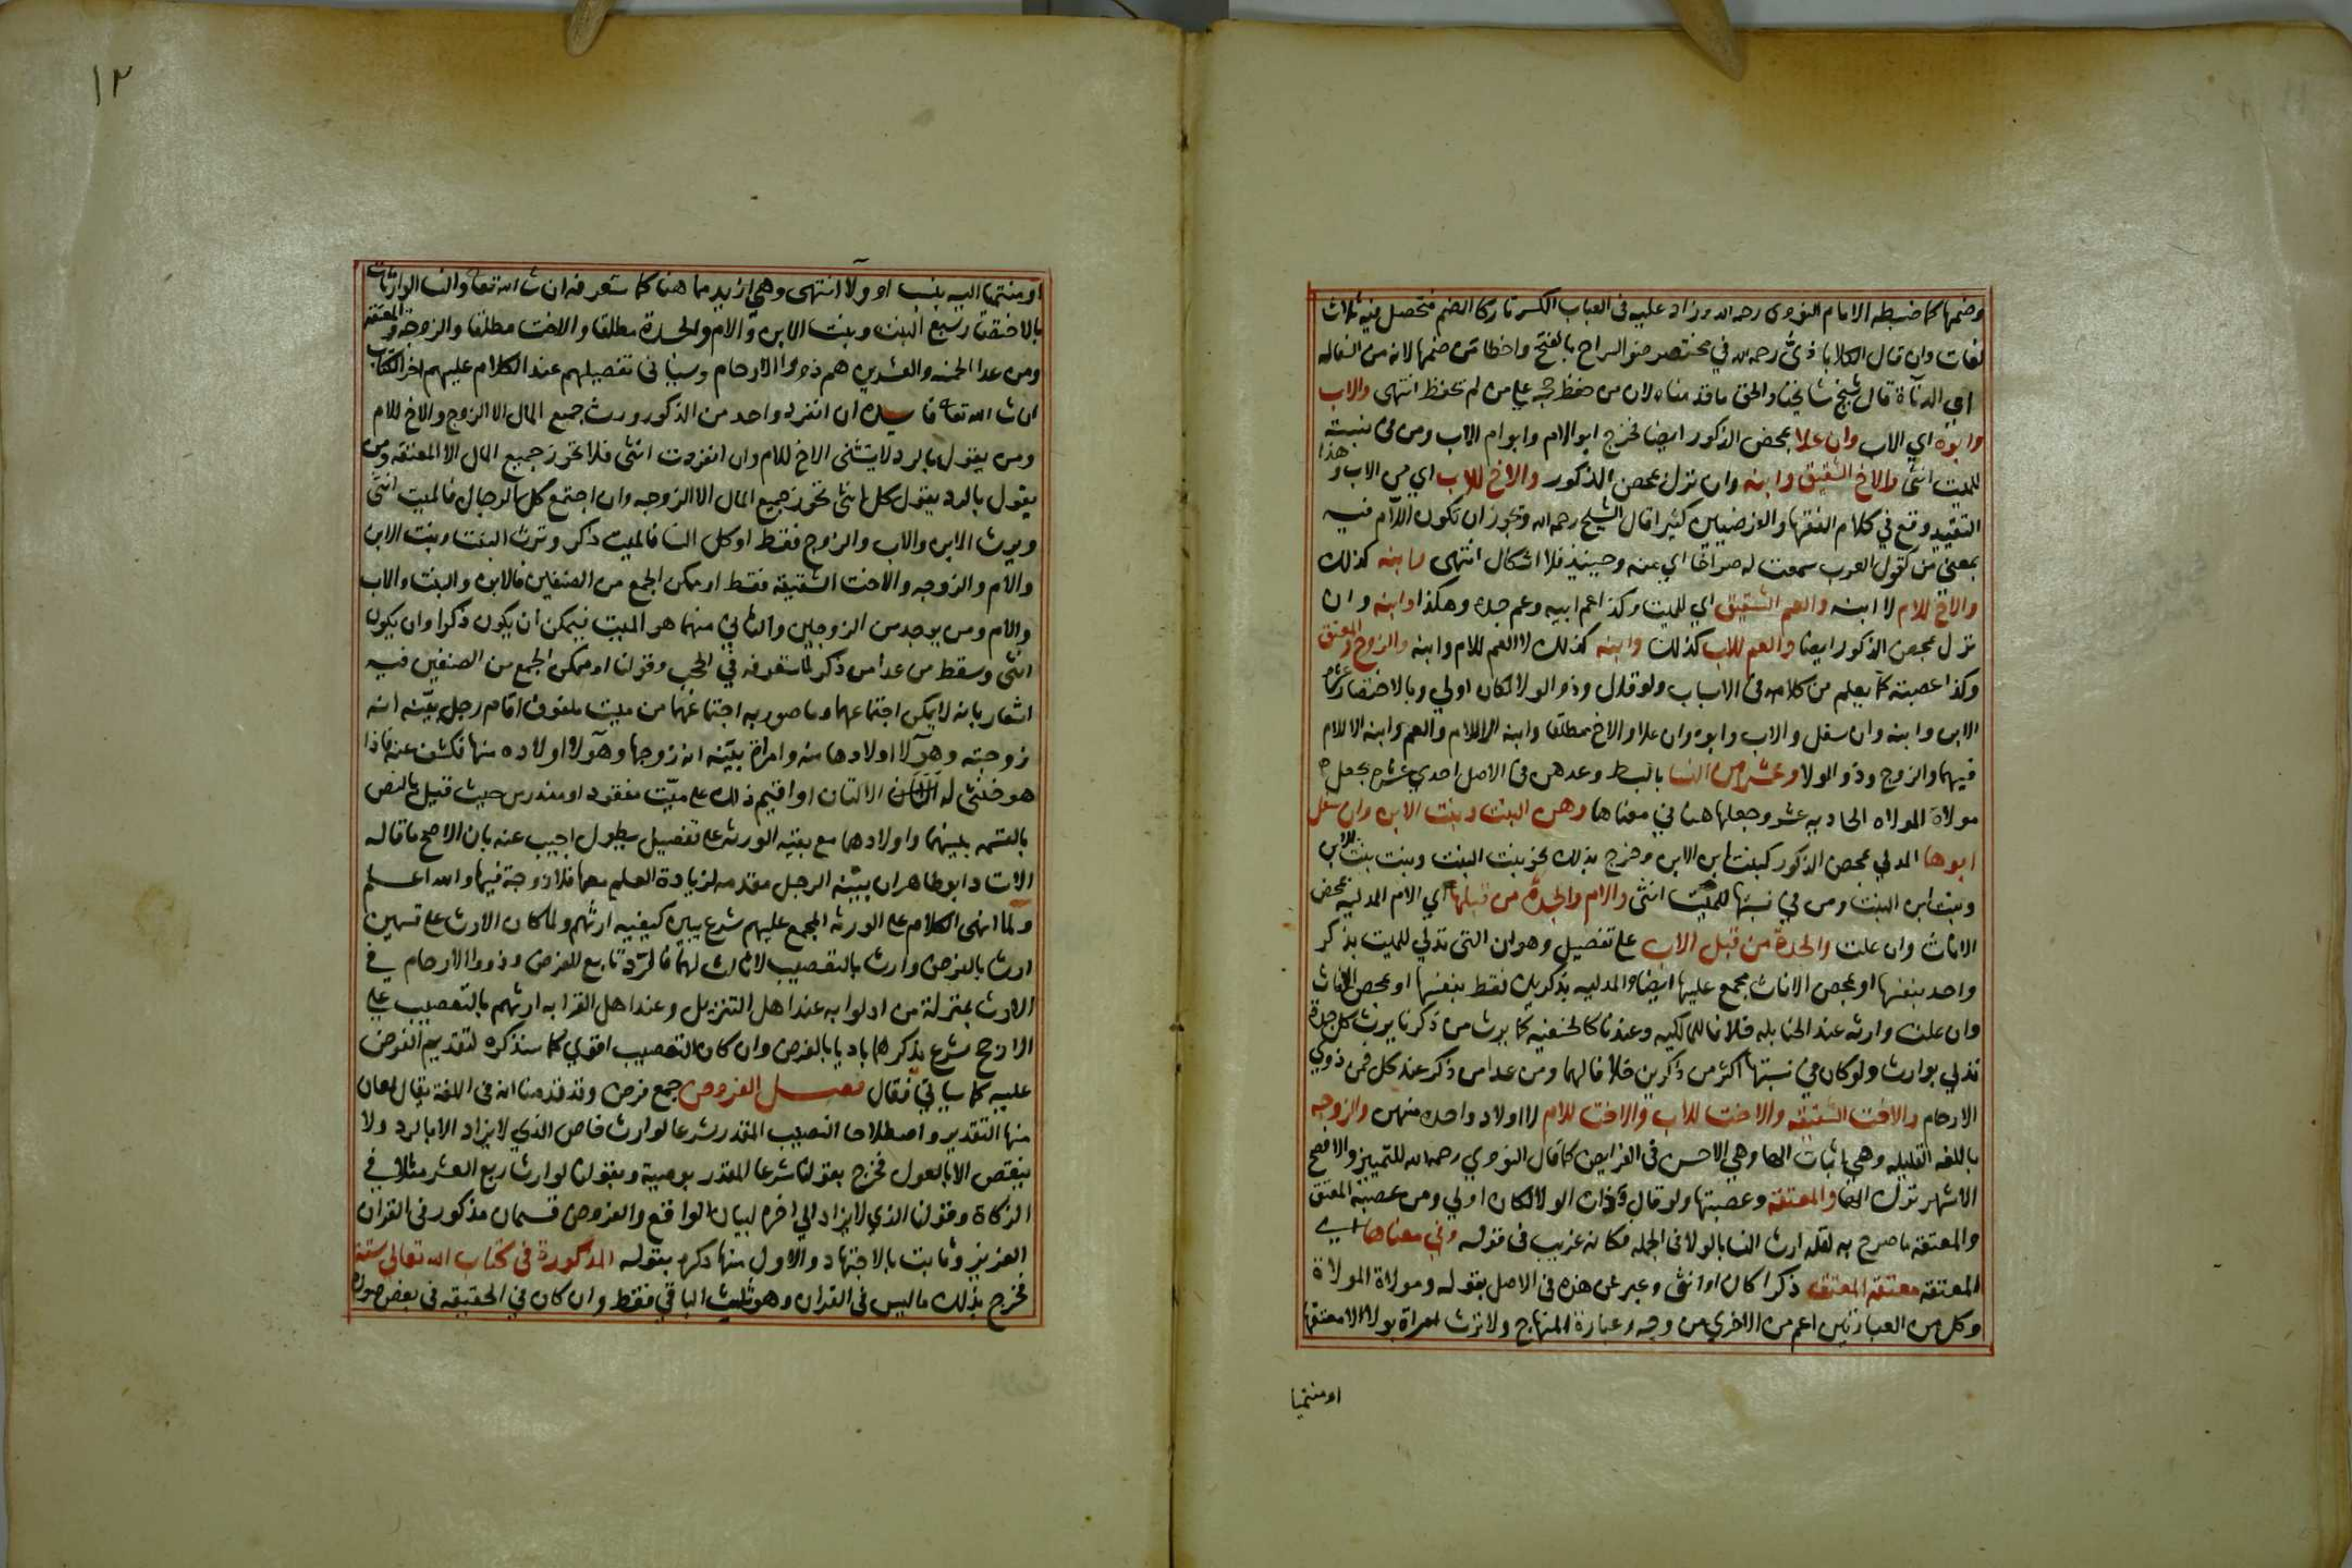 وضمها كما ضبطه الامام النووى رحمه الله وزاد عليه فى العباب الكسر تاركا الضم فتحصل فيه ثلاث
لغات وان قال الكلاباذى رحمه الله في مختصر ضوالسراج بالفتح واخطا من ضمها لانه من السفاله
اي الدناة قال شيخ مشايخنا والحق ما قدمناه لان من حفظ حجه علي من لم يحفظ انتهى والاب
وابوه اي الاب وان علا بمحض الذكور ايضا فخرج ابو الام وابو ام الاب ومن فى نسبته
للميت انثى والاخ الشقيق وابنه وان نزل بمحض الذكور والاخ للاب اي من الاب وهذا
التقييد وقع في كلام الفقها والفرضيين كثيرا قال الشيخ رحمه الله ويجوز ان تكون اللام فيه
بمعنى من كقول العرب سمعت له صراخا اي منه وحينيذ فلا اشكال انتهى وابنه كذلك
والاخ للام لا ابنه والعم الشقيق اي للميت وكذا عم ابيه وعم جده وهكذا وابنه وان
نزل بمحض الذكور ايضا والعم للاب كذلك وابنه كذلك لا العم للام وابنه والزوج والمعتق
وكذا عصبته كما يعلم من كلامه فى الاسباب ولو قال وذو الولا لكان اولي وبالاختصار عشرة
الابن وابنه وان سفل والاب وابوه وان علا والاخ مطلقا وابنه الا للام والعم وابنه الا للام
فيهما والزوج وذو الولا وعشر من النسا بالبسط وعدهن فى الاصل احدي عشرة بجعل
مولاة المولاه الحاديه عشر وجعلها هنا في معناها وهن البنت وبنت الابن وان سفل
ابوها المدلي بمحض الذكور كبنت ابن الابن وخرج بذلك نحو بنت البنت وبنت بنت الابن
وبنت ابن البنت ومن في نسبتها للميت انثى والام والجدة من قبلها اي الام المدليه بمحض
الاناث وان علت والجدة من قبل الاب علي تفصيل وهو ان التى تدلي للميت بذكر
واحد بنفسها او بمحض الاناث مجمع عليها ايضا والمدليه بذكرين فقط بنفسها او بمحض الاناث
وان علت وارثه عند الحنابله خلافا للمالكيه وعندنا كالحنفيه كما يرث من ذكرنا يرث كل جدة
تدلي بوارث ولو كان في نسبتها اكثر من ذكرين خلافا لهما ومن عدا من ذكر عند كل فمن ذوي
الارحام والاخت الشقيقه والاخت للاب والاخت للام لا اولاد واحده منهن والزوجه
باللغه القليله وهي باثبات الها وهي الاحسن فى الفرايض كما قال النووي رحمه الله للتمييز والافصح
الاشهر ترك الها والمعتقه وعصبتها ولو قال وذات الولا لكان اولي ومن عصبة المعتق
والمعتقه ما صرح به لقلة ارث النسا بالولا فى الجمله فكانه غريب فى قوله وفي معناها اي
المعتقه معتقة المعتق ذكرا كان او انثى وعبر عن هذه فى الاصل بقوله ومولاة المولاة
وكل من العبارتين اعم من الاخري من وجه وعبارة المنهاج ولا ترث امراة بولا الا معتقها
او منتميا
١٢
او منتميا اليه بنسب او ولا انتهى وهي ازيد مما هنا كما ستعرفه ان شا الله تعالى والنسا الوارثات
بالاختصار سبع البنت وبنت الابن والام والجدة مطلقا والاخت مطلقا والزوجة والمعتقة
ومن عدا الخمسه والعشرين هم ذووا الارحام وسياتى تفصيلهم عند الكلام عليهم اخر الكتاب
ان شا الله تعالى فايده ان انفرد واحد من الذكور ورث جميع المال الا الزوج والاخ للام
ومن يقول بالرد لا يستثنى الاخ للام وان انفردت انثى فلا تحوز جميع المال الا المعتقه ومن
يقول بالرد يقول كل انثى تحوز جميع المال الا الزوجه وان اجتمع كل الرجال فالميت انثى
ويرث الابن والاب والزوج فقط او كل النسا فالميت ذكر وترث البنت وبنت الابن
والام والزوجه والاخت الشقيقه فقط او ممكن الجمع من الصنفين فالابن والبنت والاب
والام ومن يوجد من الزوجين والثاني منهما هو الميت فيمكن ان يكون ذكرا وان يكون
انثى وسقط من عدا من ذكر لما ستعرفه في الحجب وقولنا او ممكن الجمع من الصنفين فيه
اشعار بانه لا يمكن اجتماعهما وما صور به اجتماعهما من ميت ملفوف اقام رجل بينه انه
زوجته وهولا اولادها منه وامراة بينه انه زوجها وهولا اولاده منها فكشف عنه فاذا
هو خنثى له الالتان او اقيم ذلك علي ميت مفقود او مندرس حيث قيل بالنص
بالقسمه بينهما واولادهما مع بقية الورثه علي تفصيل يطول اجيب عنه بان الاصح ما قاله
الاستاد ابو طاهر ان بينة الرجل مقدمه لزيادة العلم معها فلا زوجة فيها والله اعلم
ولما انهى الكلام على الورثه المجمع عليهم شرع يبين كيفيه ارثهم ولما كان الارث على قسمين
ارث بالفرض وارث بالتعصيب لا ثالث لهما فالرد تابع للفرض وذووا الارحام في
الارث بمنزلة من ادلوا به عند اهل التنزيل وعند اهل القرابه ارثهم بالتعصيب علي
الارجح شرع يذكرهما باديا بالفرض وان كان التعصيب اقوي كما سنذكره لتقديم الفرض
عليه كما سياتي فقال فصل الفروض جمع فرض وقد قدمنا انه فى اللغة يقال لمعان
منها التقدير واصطلاحا النصيب المقدر شرعا لوارث خاص الذي لا يزاد الا بالرد ولا
ينقص الا بالعول فخرج بقولنا شرعا المقدر بوصية وبقولنا لوارث ربع العشر مثلا في
الزكاة وقولنا الذي لا يزاد الى اخره لبيان الواقع والفروض قسمان مذكور فى القران
العزيز وثابت بالاجتهاد والاول منها ذكره بقوله المذكورة فى كتاب الله تعالى ستة
فخرج بذلك ما ليس فى القران وهو ثلث الباقي فقط وان كان في الحقيقه فى بعض صوره